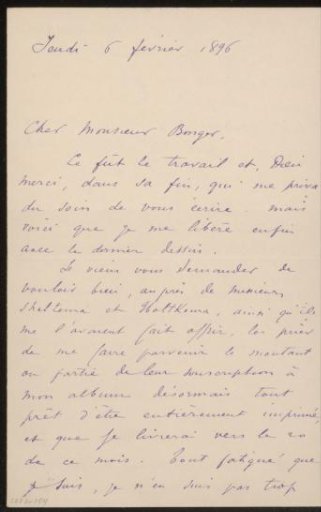 Jeudi 6 février 1896
Cher Monsieur Bonger,
Ce fût le travail et, Dieu
merci, dans sa fin, qui me priva
du soin de vous écrire. mais
voici que je me libère enfin
avec le dernier dessin.
Je viens vous demander de
vouloir bien, auprès de messieurs
Scheltema et Holtkema, ainsi qu'ils
me l'avaient fait offrir, les prier
de me faire parvenir le montant
ou partie de leur souscription à
mon album désormais tout
prêt d'être entièrement imprimé,
et que je livrerai vers le 20
de ce mois. Tout fatigué que
je suis, je n'en suis pas trop